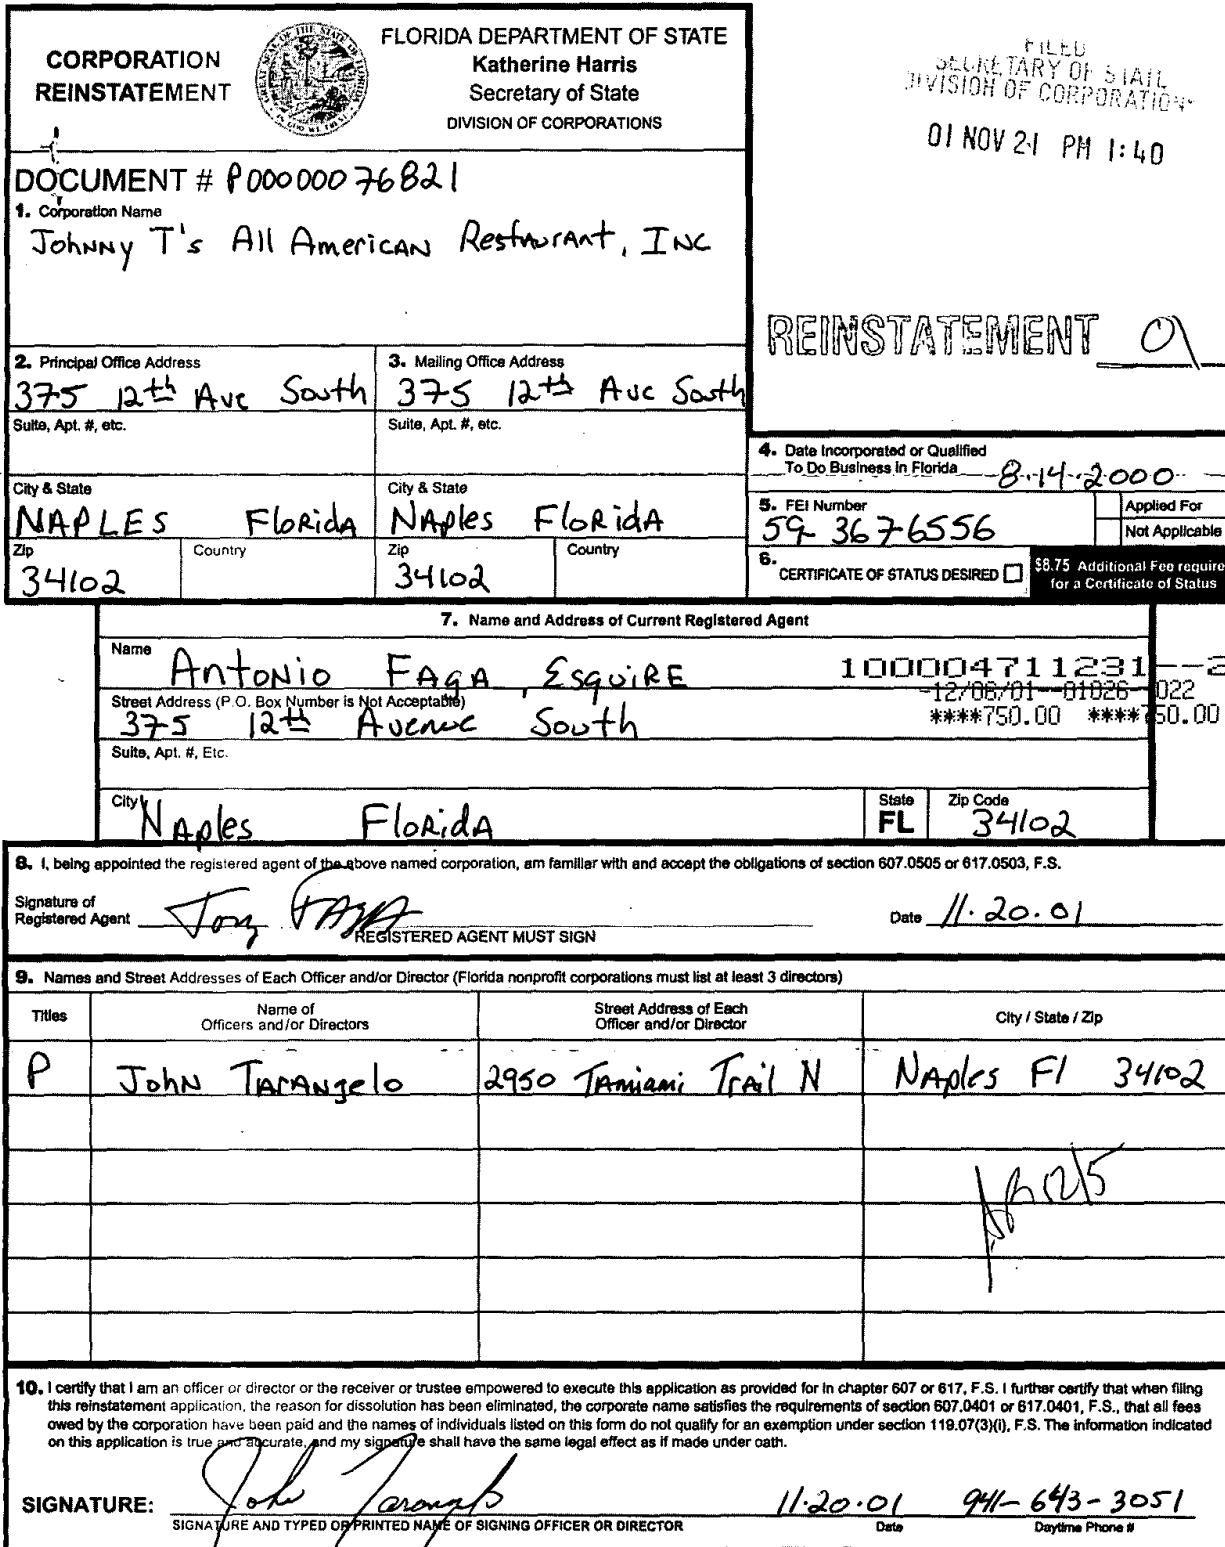 CORPORATION
REINSTATEMENT
FLORIDA DEPARTMENT OF STATE
Katherine Harris
Secretary of State
DIVISION OF CORPORATIONS
FILED
SECRETARY OF STATE
DIVISION OF CORPORATIONS
01 NOV 21 PM 1:40
DOCUMENT # P00000076821
1. Corporation Name
Johnny T's All American Restaurant, Inc
REINSTATEMENT 01
2. Principal Office Address
375 12th Ave South
Suite, Apt. #, etc.
City & State
NAPLES Florida
Zip
34102
Country
3. Mailing Office Address
375 12th Ave South
Suite, Apt. #, etc.
City & State
Naples Florida
Zip
34102
Country
4. Date Incorporated or Qualified
To Do Business in Florida 8-14-2000
5. FEI Number
59-3676556
Applied For
Not Applicable
6. CERTIFICATE OF STATUS DESIRED
$8.75 Additional Fee require
for a Certificate of Status
7. Name and Address of Current Registered Agent
Name
Antonio Faga, Esquire
100004711231--2
-12/06/01--01026--022
****750.00 ****750.00
Street Address (P.O. Box Number is Not Acceptable)
375 12th Avenue South
Suite, Apt. #, Etc.
City
Naples Florida
State
FL
Zip Code
34102
8. I, being appointed the registered agent of the above named corporation, am familiar with and accept the obligations of section 607.0505 or 617.0503, F.S.
Signature of
Registered Agent Tony Faga
REGISTERED AGENT MUST SIGN
Date 11.20.01
9. Names and Street Addresses of Each Officer and/or Director (Florida nonprofit corporations must list at least 3 directors)
Titles
Name of
Officers and/or Directors
Street Address of Each
Officer and/or Director
City / State / Zip
P John Tarangelo 2950 Tamiami Trail N Naples Fl 34102
12/5
10. I certify that I am an officer or director or the receiver or trustee empowered to execute this application as provided for in chapter 607 or 617, F.S. I further certify that when filing
this reinstatement application, the reason for dissolution has been eliminated, the corporate name satisfies the requirements of section 607.0401 or 617.0401, F.S., that all fees
owed by the corporation have been paid and the names of individuals listed on this form do not qualify for an exemption under section 119.07(3)(i), F.S. The information indicated
on this application is true and accurate, and my signature shall have the same legal effect as if made under oath.
SIGNATURE: John Tarangelo 11.20.01 941-643-3051
SIGNATURE AND TYPED OR PRINTED NAME OF SIGNING OFFICER OR DIRECTOR
Date
Daytime Phone #